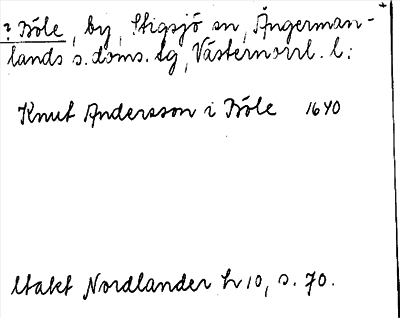 ? Böle, by, Stigsjö sn, Ångerman-
lands s. doms. tg, Västernorrl. l:
Knut Andersson i Böle 1640
Utakt Nordlander h 10, s. 70.